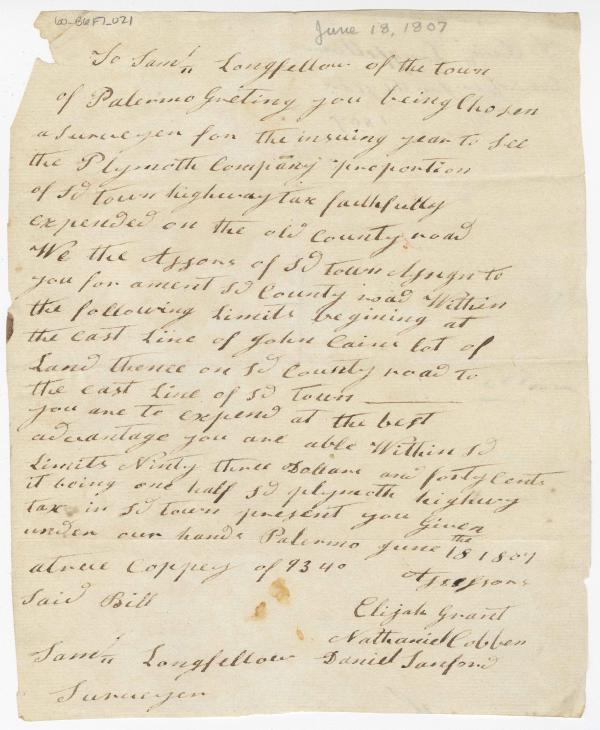 60-B6F7-021
June 18, 1807
To Saml Longfellow of the town
of Palermo Greting you being Chosen
a Surveyer for the insuing year to See
the Plymoth Company proportion
of Sd town highway tax faithfully
expended on the old County road
We the Assors of Sd town Assgn to
you for ament Sd County road Within
the following Limits begining at
the East Line of John Cains lot of
Land thence on Sd County road to
the east Line of Sd town
you are to expend at the best
advantage you are able Within Sd
Limits Ninty three Dollars and forty Cents
it being one half Sd plymoth highwy
tax in Sd town present you Given
under our hands Palermo June the 18 1807
atrue Coppey of 93 40
Assessors
Said Bill
Elijah Grant
Nathaniel Cobben
Saml Longfellow Daniel Sanford
Surveyer